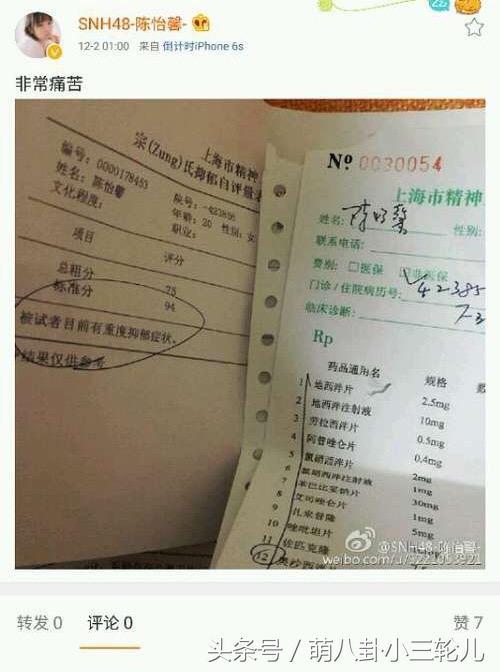 SNH48-陈怡馨-
12-2 01:00 来自 倒计时iPhone 6s
非常痛苦
上海市精神
宗(Zung)氏抑郁自评量表
编号: 0000178453
院号: -423856
姓名: 陈怡馨
年龄: 20 性别: 女
文化程度:
职业:
项目 评分
总粗分 75
标准分 94
被试者目前有重度抑郁症状。
结果仅供参考
№ 0030054
上海市精神
姓名: 陈怡馨 性别:
联系电话:
费别: □医保 □非医保
门诊/住院病历号: 42385
临床诊断:
Rp
药品通用名 规格
1 地西泮片 2.5mg
2 地西泮注射液 10mg
3 劳拉西泮片 0.5mg
4 阿普唑仑片 0.4mg
5 氯硝西泮片 2mg
6 氯硝西泮注射液 1mg
7 苯巴比妥钠片 30mg
8 艾司唑仑片 1mg
9 扎来普隆 5mg
10 唑吡坦片
11 佐匹克隆
12 奥沙西泮
@SNH48-陈怡馨-
weibo.com/u/5221053921
转发 0 评论 0 赞 7
头条号 / 萌八卦小三轮儿